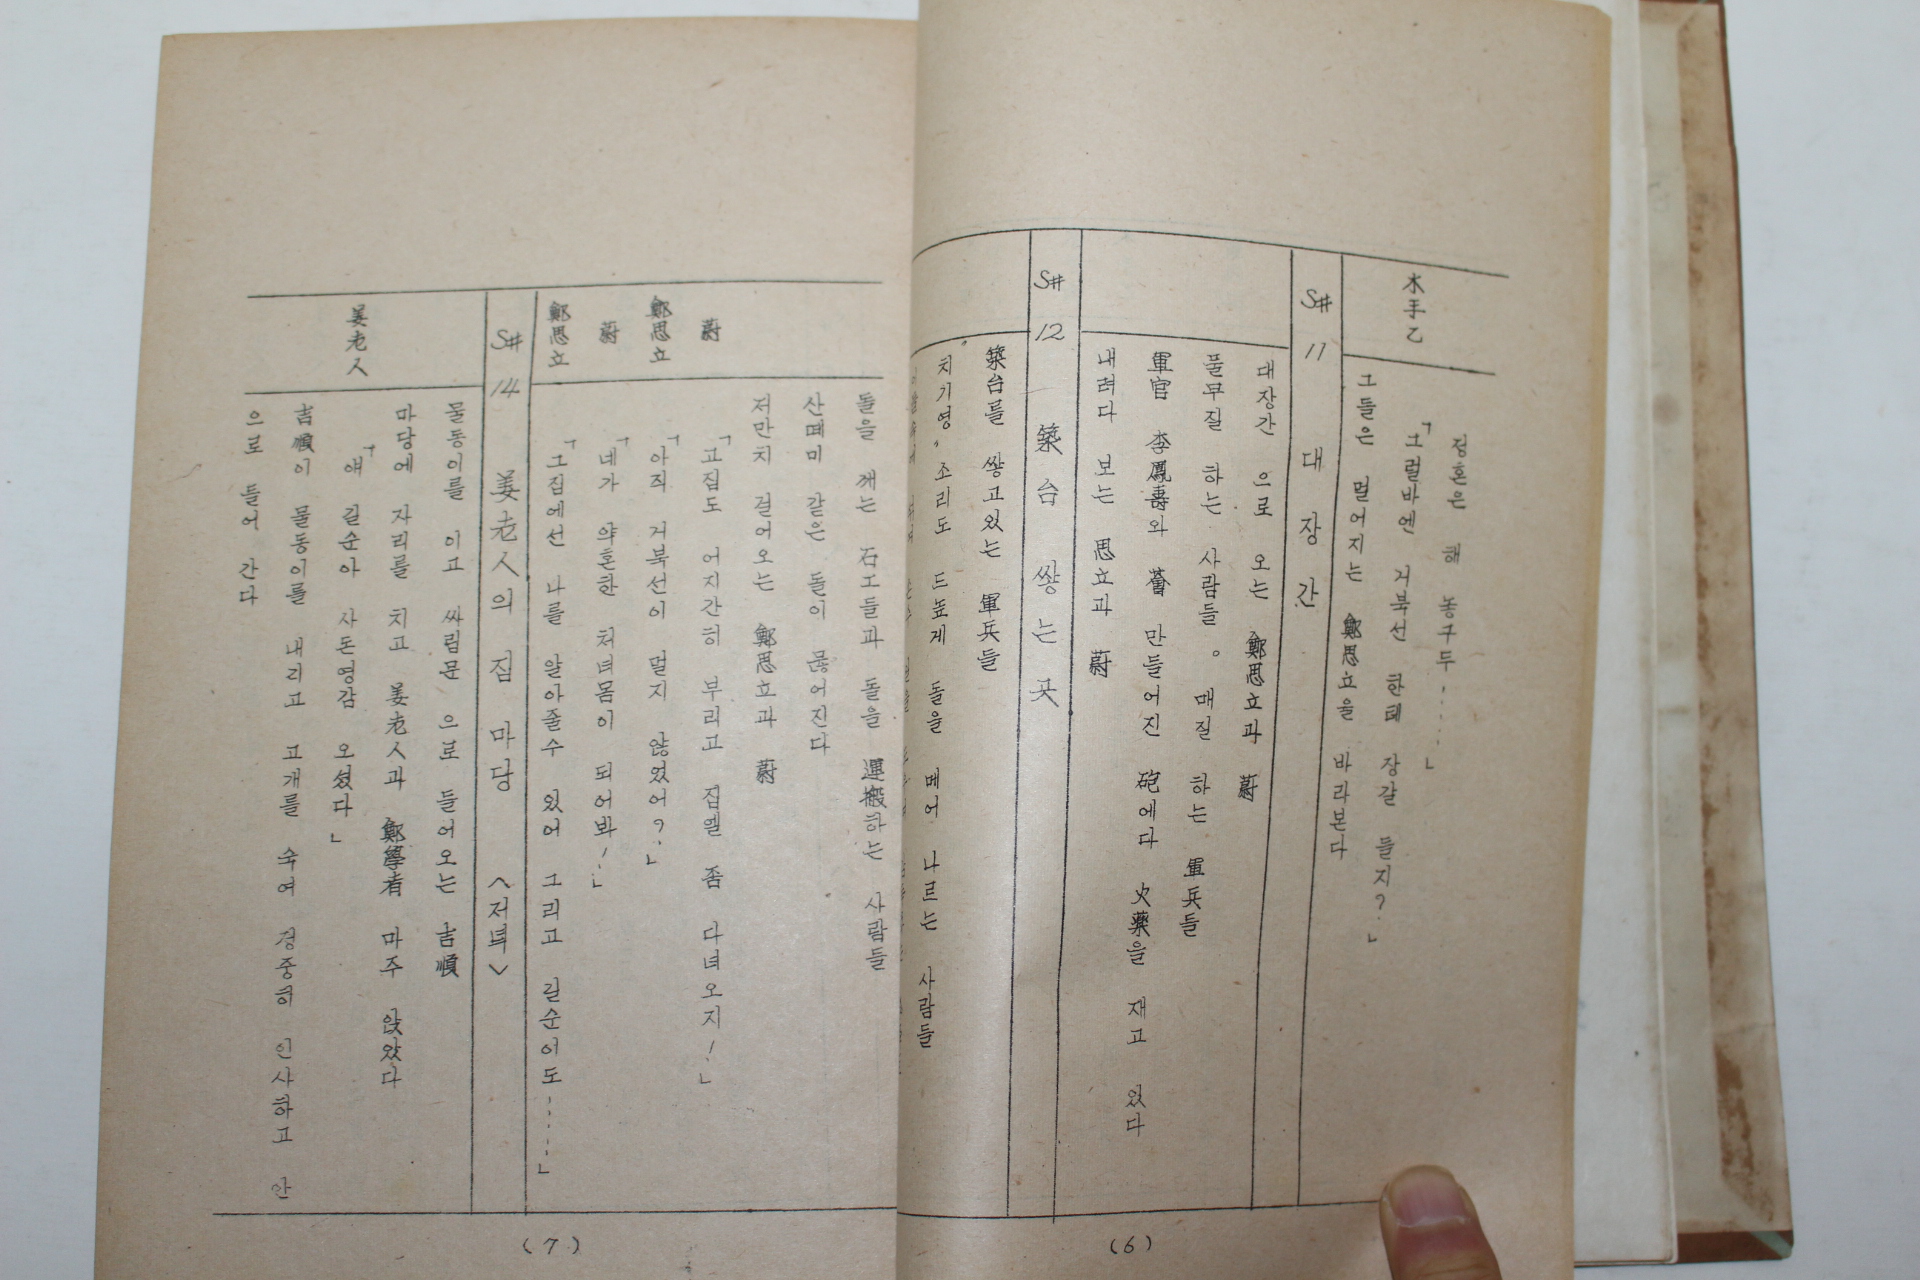 정혼은 해 놓구두……」
木手乙
「그럴바엔 거북선 한테 장갈 들지?」
그들은 멀어지는 鄭思立을 바라본다
S# 11 대장간
대장간 으로 오는 鄭思立과 蔚
풀무질 하는 사람들。 매질 하는 軍兵들
軍官 李鳳壽와 만들어진 砲에다 火藥을 재고 있다
내려다 보는 思立과 蔚
S# 12 築台 쌓는 곳
築台를 쌓고있는 軍兵들
치기영, 소리도 드높게 돌을 메어 나르는 사람들
(6)
돌을 깨는 石工들과 돌을 運搬하는 사람들
산떼미 같은 돌이 묺어진다
저만치 걸어오는 鄭思立과 蔚
蔚
「고집도 어지간히 부리고 집엘 좀 다녀오지!」
鄭思立
「아직 거북선이 멀지 않었어?」
蔚
「네가 약혼한 처녀몸이 되어봐!…」
鄭思立
「그집에선 나를 알아줄수 있어 그리고 길순이도……」
S# 14 姜老人의 집 마당 <저녁>
물동이를 이고 싸림문 으로 들어오는 吉順
마당에 자리를 치고 姜老人과 鄭學者 마주 앉았다
姜老人
「얘 길순아 사돈영감 오셨다」
吉順이 물동이를 내리고 고개를 숙여 정중히 인사하고 안
으로 들어 간다
(7)